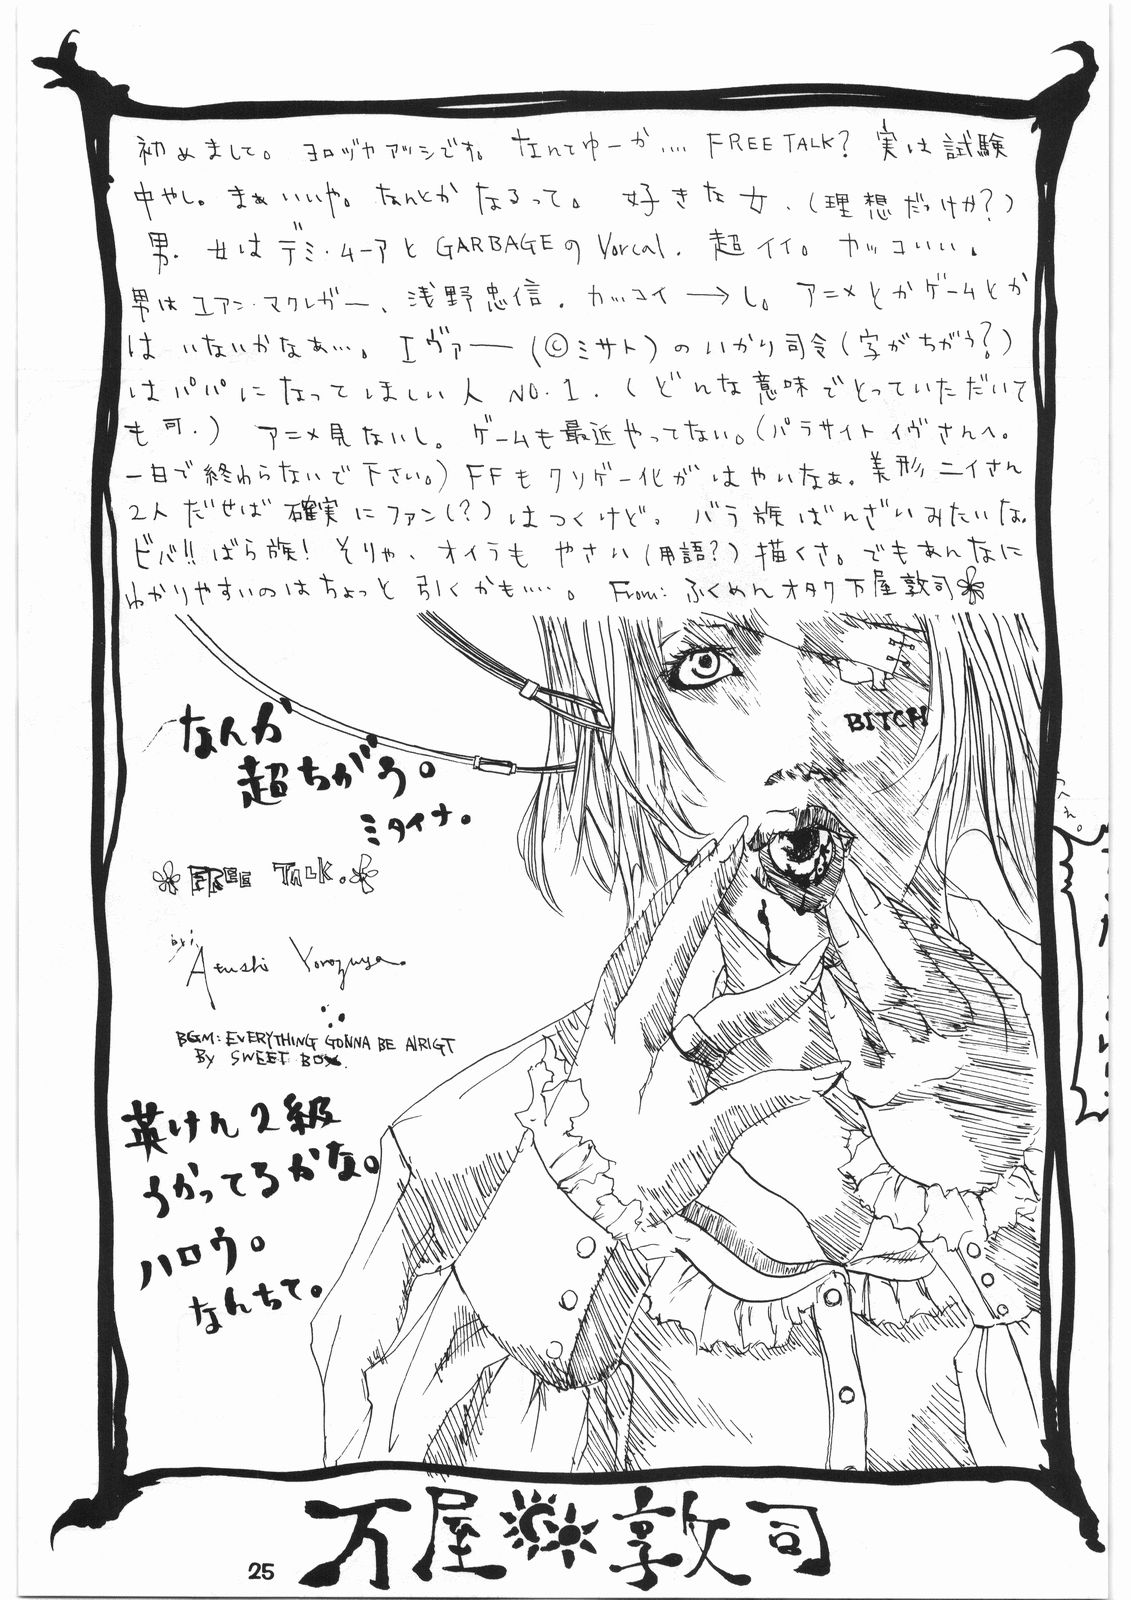 初めまして。ヨロヅヤアツシです。なんてゆーか…. FREE TALK? 実は試験
中やし。まぁいいや。なんとかなるって。好きな女、(理想だっけか?)
男. 女はデミ・ムーアとGARBAGEのVorcal. 超イイ。カッコいい。
男はユアン・マクレガー、浅野忠信. カッコイ→し。アニメとかゲームとか
はいないかなぁ…。エヴァー(©ミサト)のいかり司令(字がちがう?)
はパパになってほしい人 NO.1. (どんな意味でとっていただいて
も可.) アニメ見ないし。ゲームも最近やってない。(パラサイトイヴさんへ。
一日で終わらないで下さい。)FFもクソゲー化がはやいなぁ。美形ニイさん
2人だせば確実にファン(?)はつくけど。バラ族ばんざいみたいな。
ビバ!! ばら族! そりゃ、オイラもやさい(用語?)描くさ。でもあんなに
わかりやすいのはちょっと引くかも….。From: ふくめんオタク万屋敦司
BITCH
なんか
超ちがう。
ミタイナ。
FREE TALK.
by Atushi Yorozuya.
BGM: EVERYTHING GONNA BE ALRIGT
By SWEET BOX.
英けん2級
うかってるかな。
ハロウ。
なんちて。
万屋敦司
25